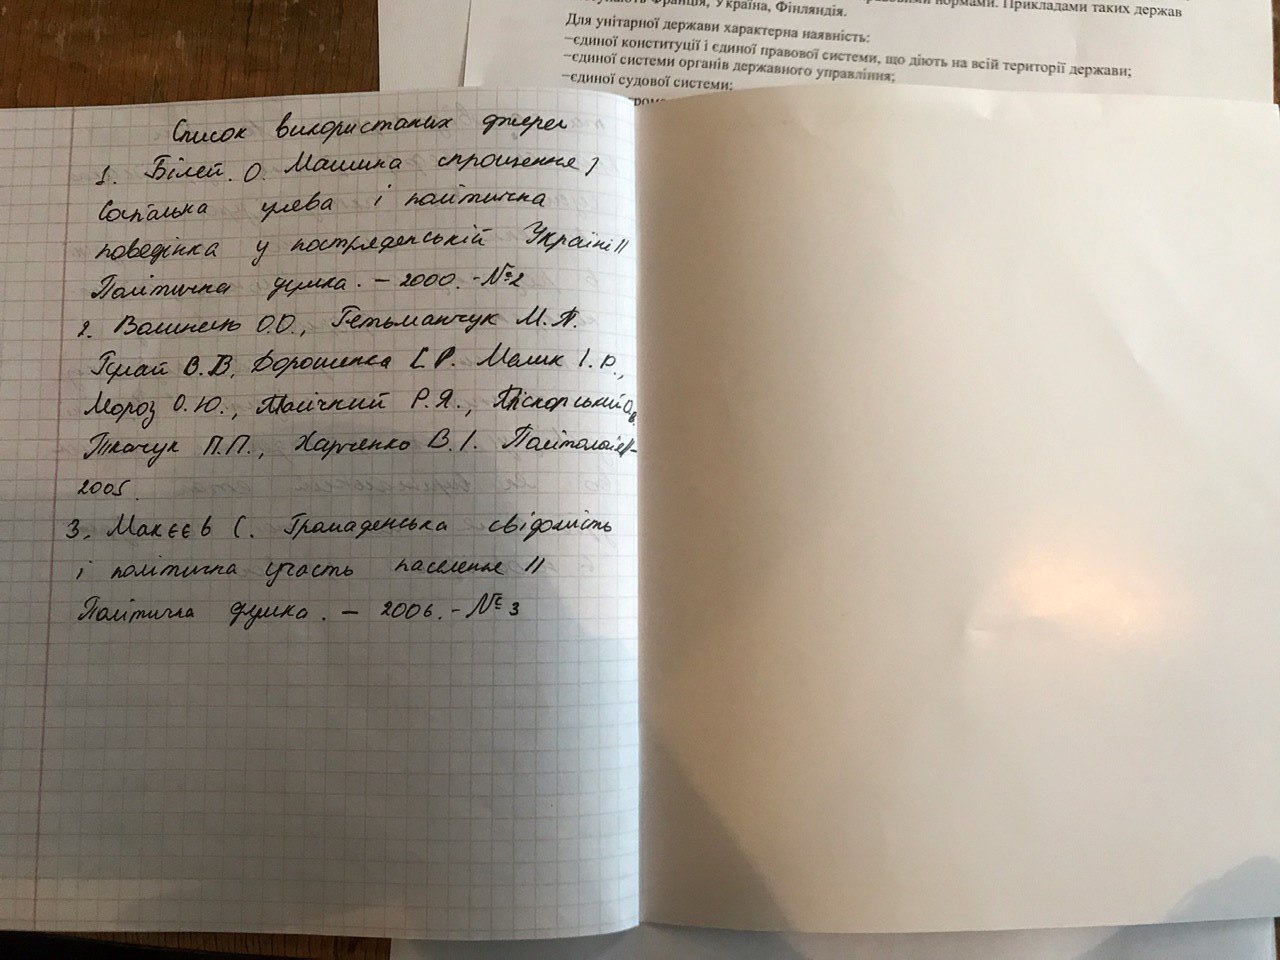 нормами. Прикладами таких держав
Франція, Україна, Фінляндія.
Для унітарної держави характерна наявність:
−єдиної конституції і єдиної правової системи, що діють на всій території держави;
−єдиної системи органів державного управління;
−єдиної судової системи;
Список використаних джерел
1. Білей. О. Машина спрощення;
Соціальна уява і політична
поведінка у пострадянській Україні //
Політична думка. – 2000. - №2
2. О.О., Гетьманчук М.П.
В.В, Дорошенка Малик І.Р.,
Мороз О.Ю., Р.Я., Піскорський О.В.
Ткачук П.П., Харченко В.І. Політологія -
2005.
3. Макєєв С. Громаденська свідомість
і політична участь населення //
Політична думка. – 2006. - № 3